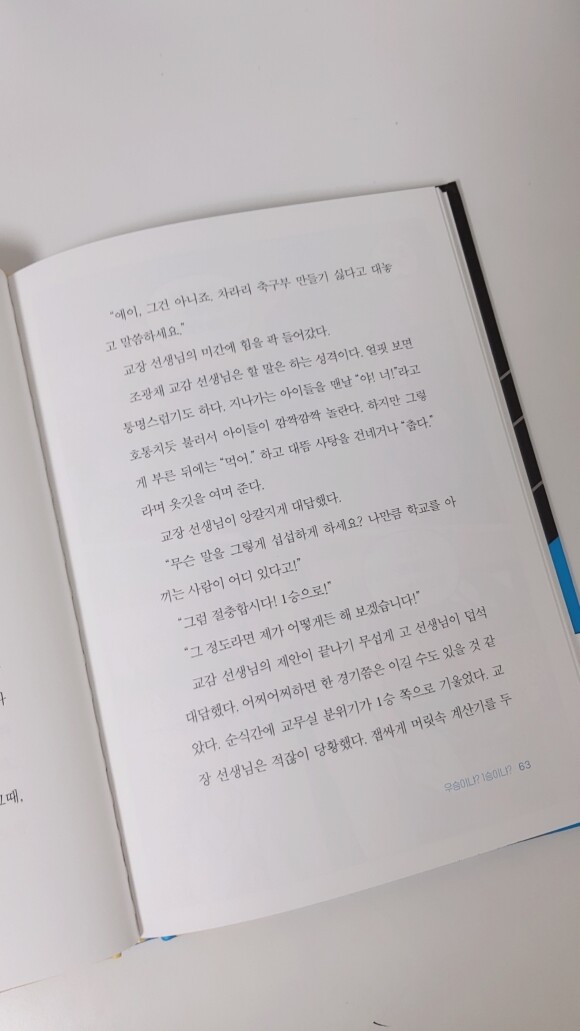 "에이, 그건 아니죠. 차라리 축구부 만들기 싫다고 대놓
고 말씀하세요."
교장 선생님의 미간에 힘을 팍 들어갔다.
조광채 교감 선생님은 할 말은 하는 성격이다. 얼핏 보면
퉁명스럽기도 하다. 지나가는 아이들을 맨날 "야! 너!"라고
호통치듯 불러서 아이들이 깜짝깜짝 놀란다. 하지만 그렇
게 부른 뒤에는 "먹어." 하고 대뜸 사탕을 건네거나 "춥다."
라며 옷깃을 여며 준다.
교장 선생님이 앙칼지게 대답했다.
"무슨 말을 그렇게 섭섭하게 하세요? 나만큼 학교를 아
끼는 사람이 어디 있다고!"
"그럼 절충합시다! 1승으로!"
"그 정도라면 제가 어떻게든 해 보겠습니다!"
교감 선생님의 제안이 끝나기 무섭게 고 선생님이 덥석
대답했다. 어찌어찌하면 한 경기쯤은 이길 수도 있을 것 같
았다. 순식간에 교무실 분위기가 1승 쪽으로 기울었다. 교
장 선생님은 적잖이 당황했다. 잽싸게 머릿속 계산기를 두
우승이냐? 1승이냐? 63
그때,